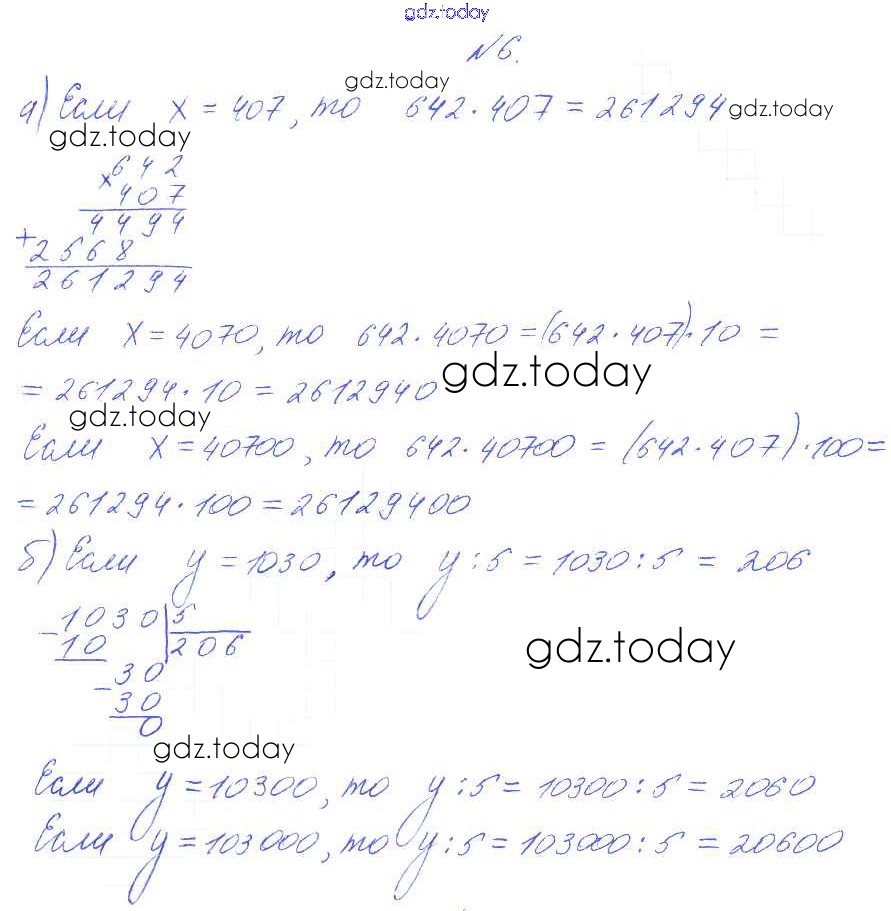 gdz.today
№6.
gdz.today
а) Если x = 407, то 642 · 407 = 261294
gdz.today
gdz.today
× 642
407
4494
+ 2568
261294
Если x = 4070, то 642 · 4070 = (642 · 407) · 10 =
gdz.today
= 261294 · 10 = 2612940
gdz.today
Если x = 40700, то 642 · 40700 = (642 · 407) · 100 =
= 261294 · 100 = 26129400
б) Если y = 1030, то y : 5 = 1030 : 5 = 206
− 1030 | 5
10 | 206
gdz.today
− 30
30
0
gdz.today
Если y = 10300, то y : 5 = 10300 : 5 = 2060
Если y = 103000, то y : 5 = 103000 : 5 = 20600